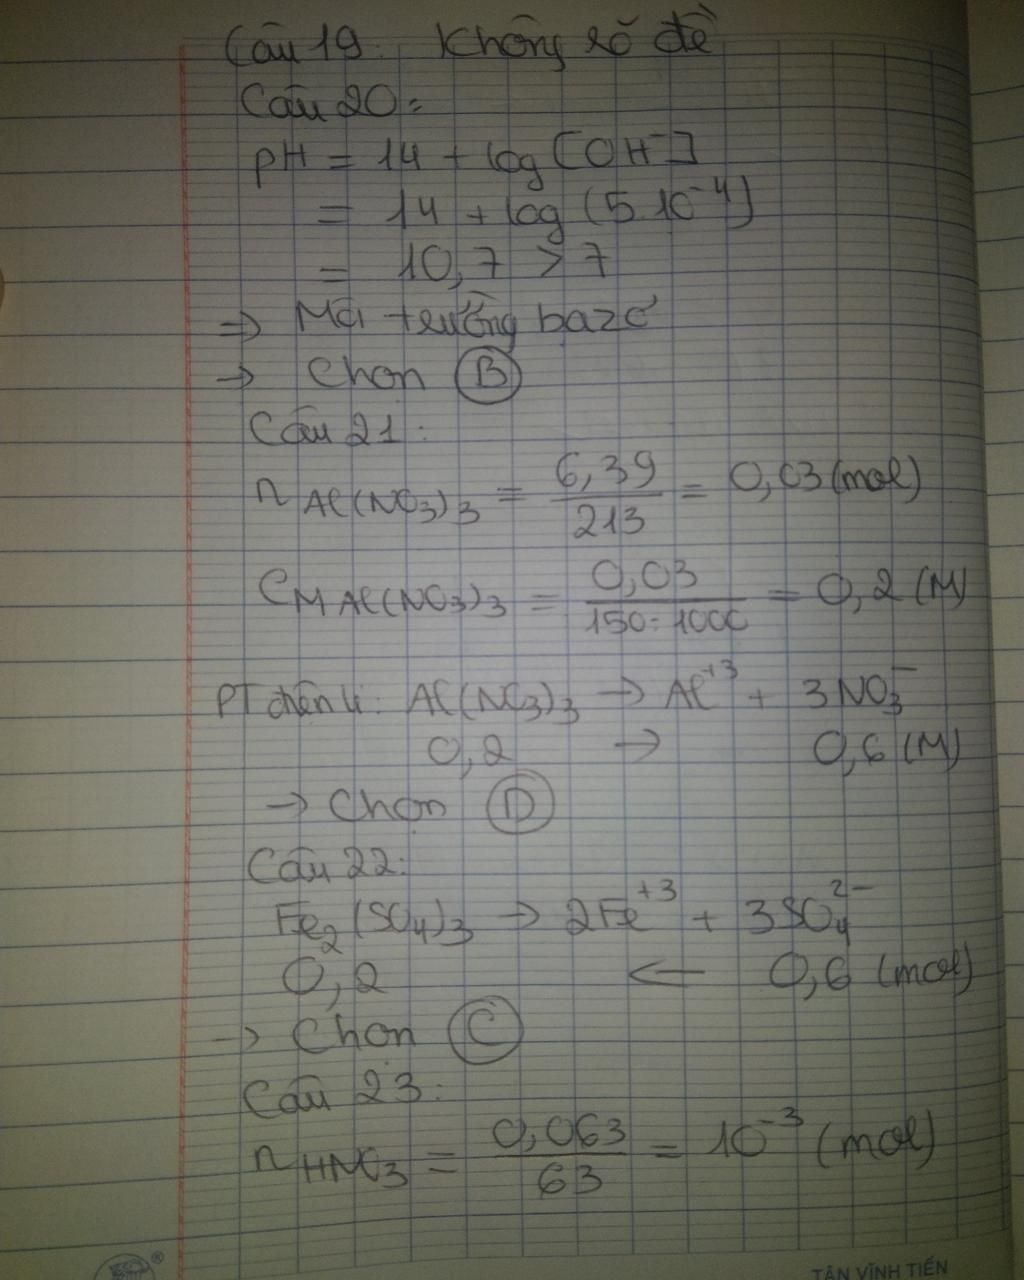 Câu 19: Không rõ đề
Câu 20:
pH = 14 + log [OH⁻]
= 14 + log (5.10⁻⁴)
= 10,7 > 7
=> Môi trường bazơ
-> Chọn (B)
Câu 21:
n Al(NO₃)₃ = 6,39/213 = 0,03 (mol)
CM Al(NO₃)₃ = 0,03/(150:1000) = 0,2 (M)
PT điện li: Al(NO₃)₃ -> Al⁺³ + 3NO₃⁻
0,2 -> 0,6 (M)
-> Chọn (D)
Câu 22:
Fe₂(SO₄)₃ -> 2Fe⁺³ + 3SO₄²⁻
0,2 <- 0,6 (mol)
-> Chọn (C)
Câu 23:
n HNO₃ = 0,063/63 = 10⁻³ (mol)
® TÂN VĨNH TIẾN